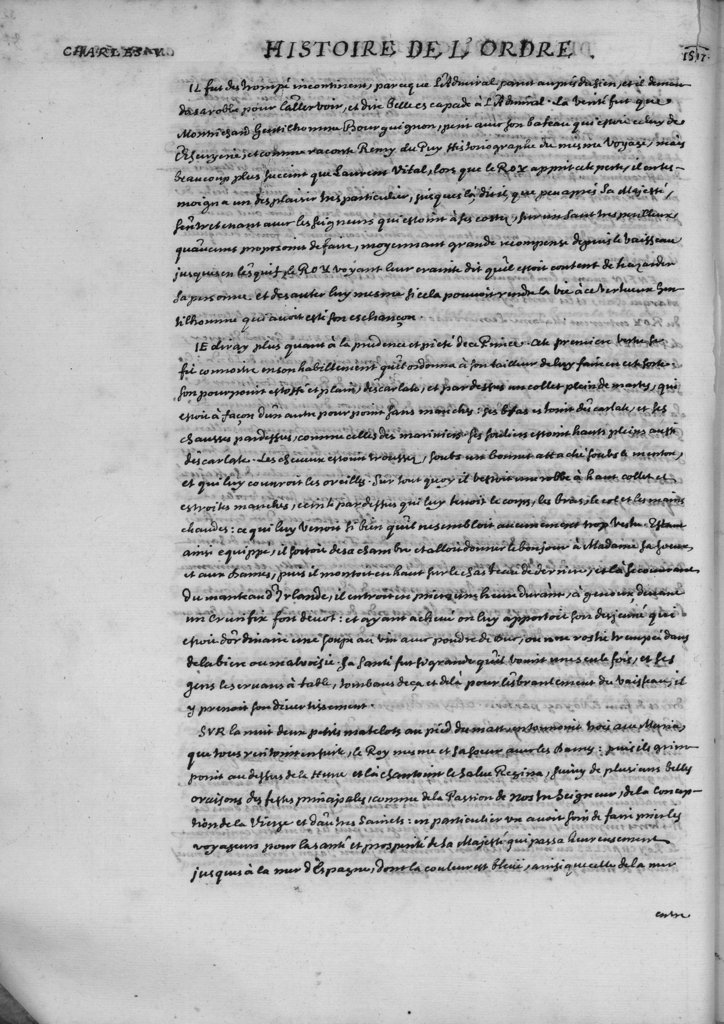 CHARLES V.
HISTOIRE DE L'ORDRE.
1517.
IL fut destrompé incontinent, parceque l'Admiral parut auprés du sien, et il deman
da sa robbe pour l'aller voir, et dire belle escapade à l'Admiral. La verité fut que
gentilhomme Bourguignon, perit avec son bateau qui estoit celuy de
l'Escurerie, et comme raconte Remy du Puy Historiographe du mesme voyage, mais
beaucoup plus succint que Laurent Vital, lors que le ROY apprit cete perte, il en tes-
moigna un desplaisir tres particulier, jusques là, dit il, que peu aprés sa Majesté,
s'entretenant avec les seigneurs qui estoint à ses costez, sur un saut tres perilleux,
qu'aucuns proposoint de faire, moyennant grande recompense depuis le vaisseau
jusques en l'esquif, le ROY voyant leur crainte dit qu'il estoit content de hazarder
sa personne et de sauter luy mesme si cela pouvoit rendre la vie à ce vertueux Gen
tilhomme qui avoit esté son eschançon.
JE diray plus quant à la prudence et pieté de ce Prince. Cete premiere vertu se
fit connoitre en son habillement qu'il ordonna à son tailleur de luy faire en cet sorte.
Son pourpoint estoffé et plain, d'escarlate, et par dessus un collet plein de martes, qui
estoit à façon d'un autre pourpoint sans manches: ses bas estoint d'escarlate, et ses
chausses pardessus, comme celles des mariniers. Ses souliers estoint hauts pleins aussi
d'escarlate. Les cheveux estoint troussez, soubs un bonnet attaché soubs le menton,
et qui luy couvroit les oreilles. Sur tout quoy il vestoit une robbe à haut collet et
estroites manches, ceinte par dessus qui luy tenoit le corps, les bras, le col et les mains
chaudes: ce qui luy venoit si bien qu'il ne sembloit aucunement trop vestu. Estant
ainsi equippé, il sortoit de sa chambre et alloit donner le bonjour à Madame sa soeur,
et aux Dames, puis il montoit en haut sur le chasteau de derriere, et là se couvrant
du manteau d'Irlande, il entroit en prieres une heure durant, à genoux devant
un Crucifix fort devot: et ayant achevé on luy apportoit son desjeuné qui
estoit d'ordinaire une soupe au vin avec poudre de Duc, ou une rostie trempée dans
de la biere ou malvoisie. Sa santé fut si grande qu'il vomit une seule fois, et ses
gens le servans à table, tombans deça et delà pour l'esbranlement du vaisseau, il
y prenoit son divertissement.
SUR la nuit deux petits matelots au pied du mast, entonnoint voix Ave Maria,
que tous redisoint ensuite, le Roy mesme et sa soeur avec les Dames: puis ils grim
point au dessus de la Hune et là chantoint le Salve Regina, suivy de plusieurs belles
oraisons des festes principales, comme de la Passion de Nostre Seigneur, de la Concep
tion de la Vierge et d'autres Saincts: en particulier on avoit soin de faire prier les
voyageurs pour la santé et prosperité de sa Majesté qui passa heureusement
jusques à la mer d'Espagne, dont la couleur est bleue, ainsi que celle de la mer
entre